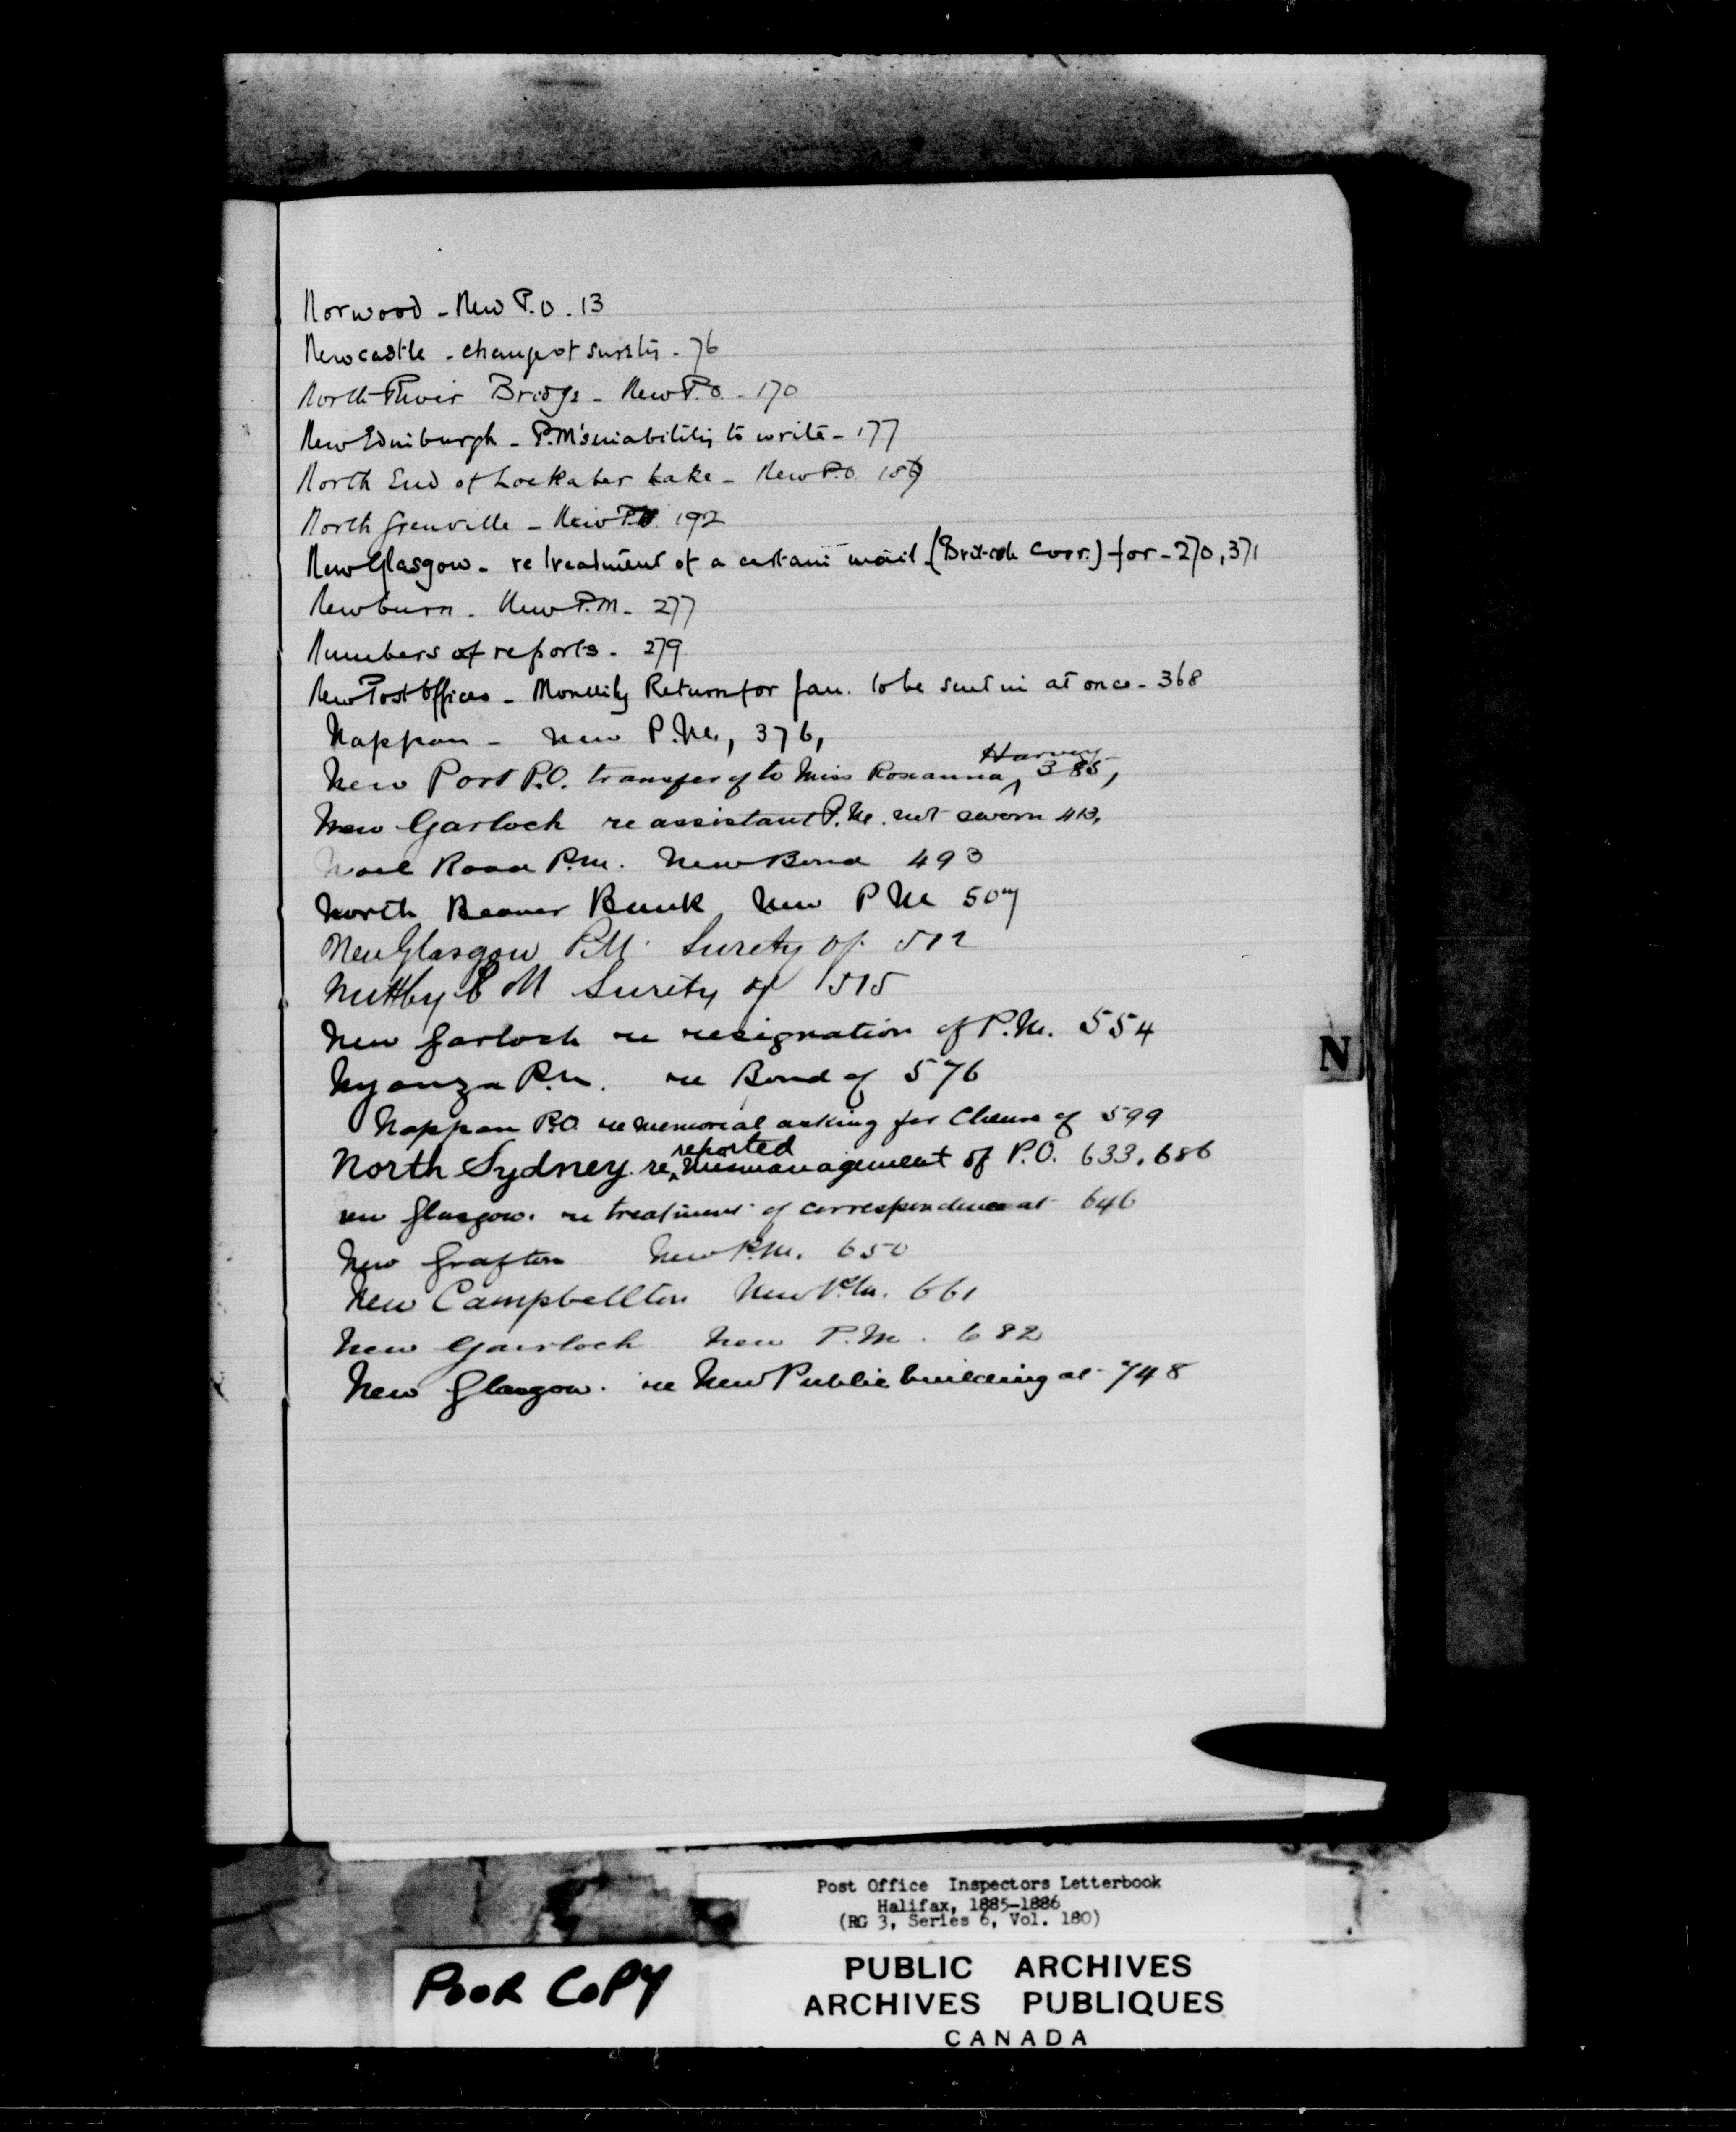 Norwood - New P.O. 13
Newcastle - change of sureties - 76
North River Bridge - New P.O. - 170
New Edinburgh - P.M's inability to write - 177
North End of Lochaber Lake - New P.O. 189
North Grenville - New P.O. 192
New Glasgow - re treatment of a certain mail (British Corr.) for - 270, 371
Newburn - New P.M. - 277
Numbers of reports - 279
New Post Offices - Monthly Return for Jan. to be sent in at once - 368
Nappan - New P.M., 376,
New Port P.O. transfer of to Miss Roxanna ^ Harvey 385,
New Garloch re assistant P.M. not sworn 413,
Noel Road P.M. New Bond 493
North Beaver Bank New P M 507
New Glasgow P.M. Surety of 512
Nuttby P M Surety of 515
New Garloch re resignation of P.M. 554
Nyanza P.M. re Bond of 576
Nappan P.O. re memorial asking for of 599
North Sydney re ^ reported mismanagement of P.O. 633, 686
New Glasgow. re treatment of correspondence at 646
New Grafton New P.M. 650
New Campbellton New P.M. 661
New Gairloch New P.M. 682
New Glasgow. re New Public building at 748
N
Post Office Inspectors Letterbook
Halifax, 1885-1886
(RG 3, Series 6, Vol. 180)
POOR COPY
PUBLIC ARCHIVES
ARCHIVES PUBLIQUES
CANADA